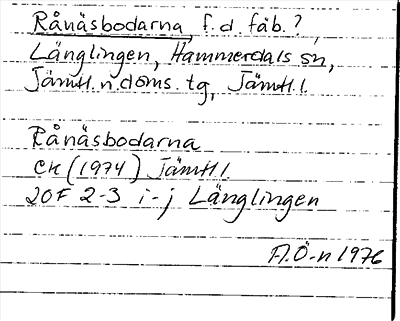 Rånäsbodarna, f.d. fäb.?,
Länglingen, Hammerdals sn,
Jämtl. n. doms. tg, Jämtl. l.
Rånäsbodarna
EK (1974) Jämtl l.
20F 2-3 i-j Länglingen
A.Ö-n 1976